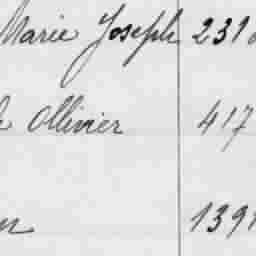 Marie Joseph 231
Ollivier 417
1391